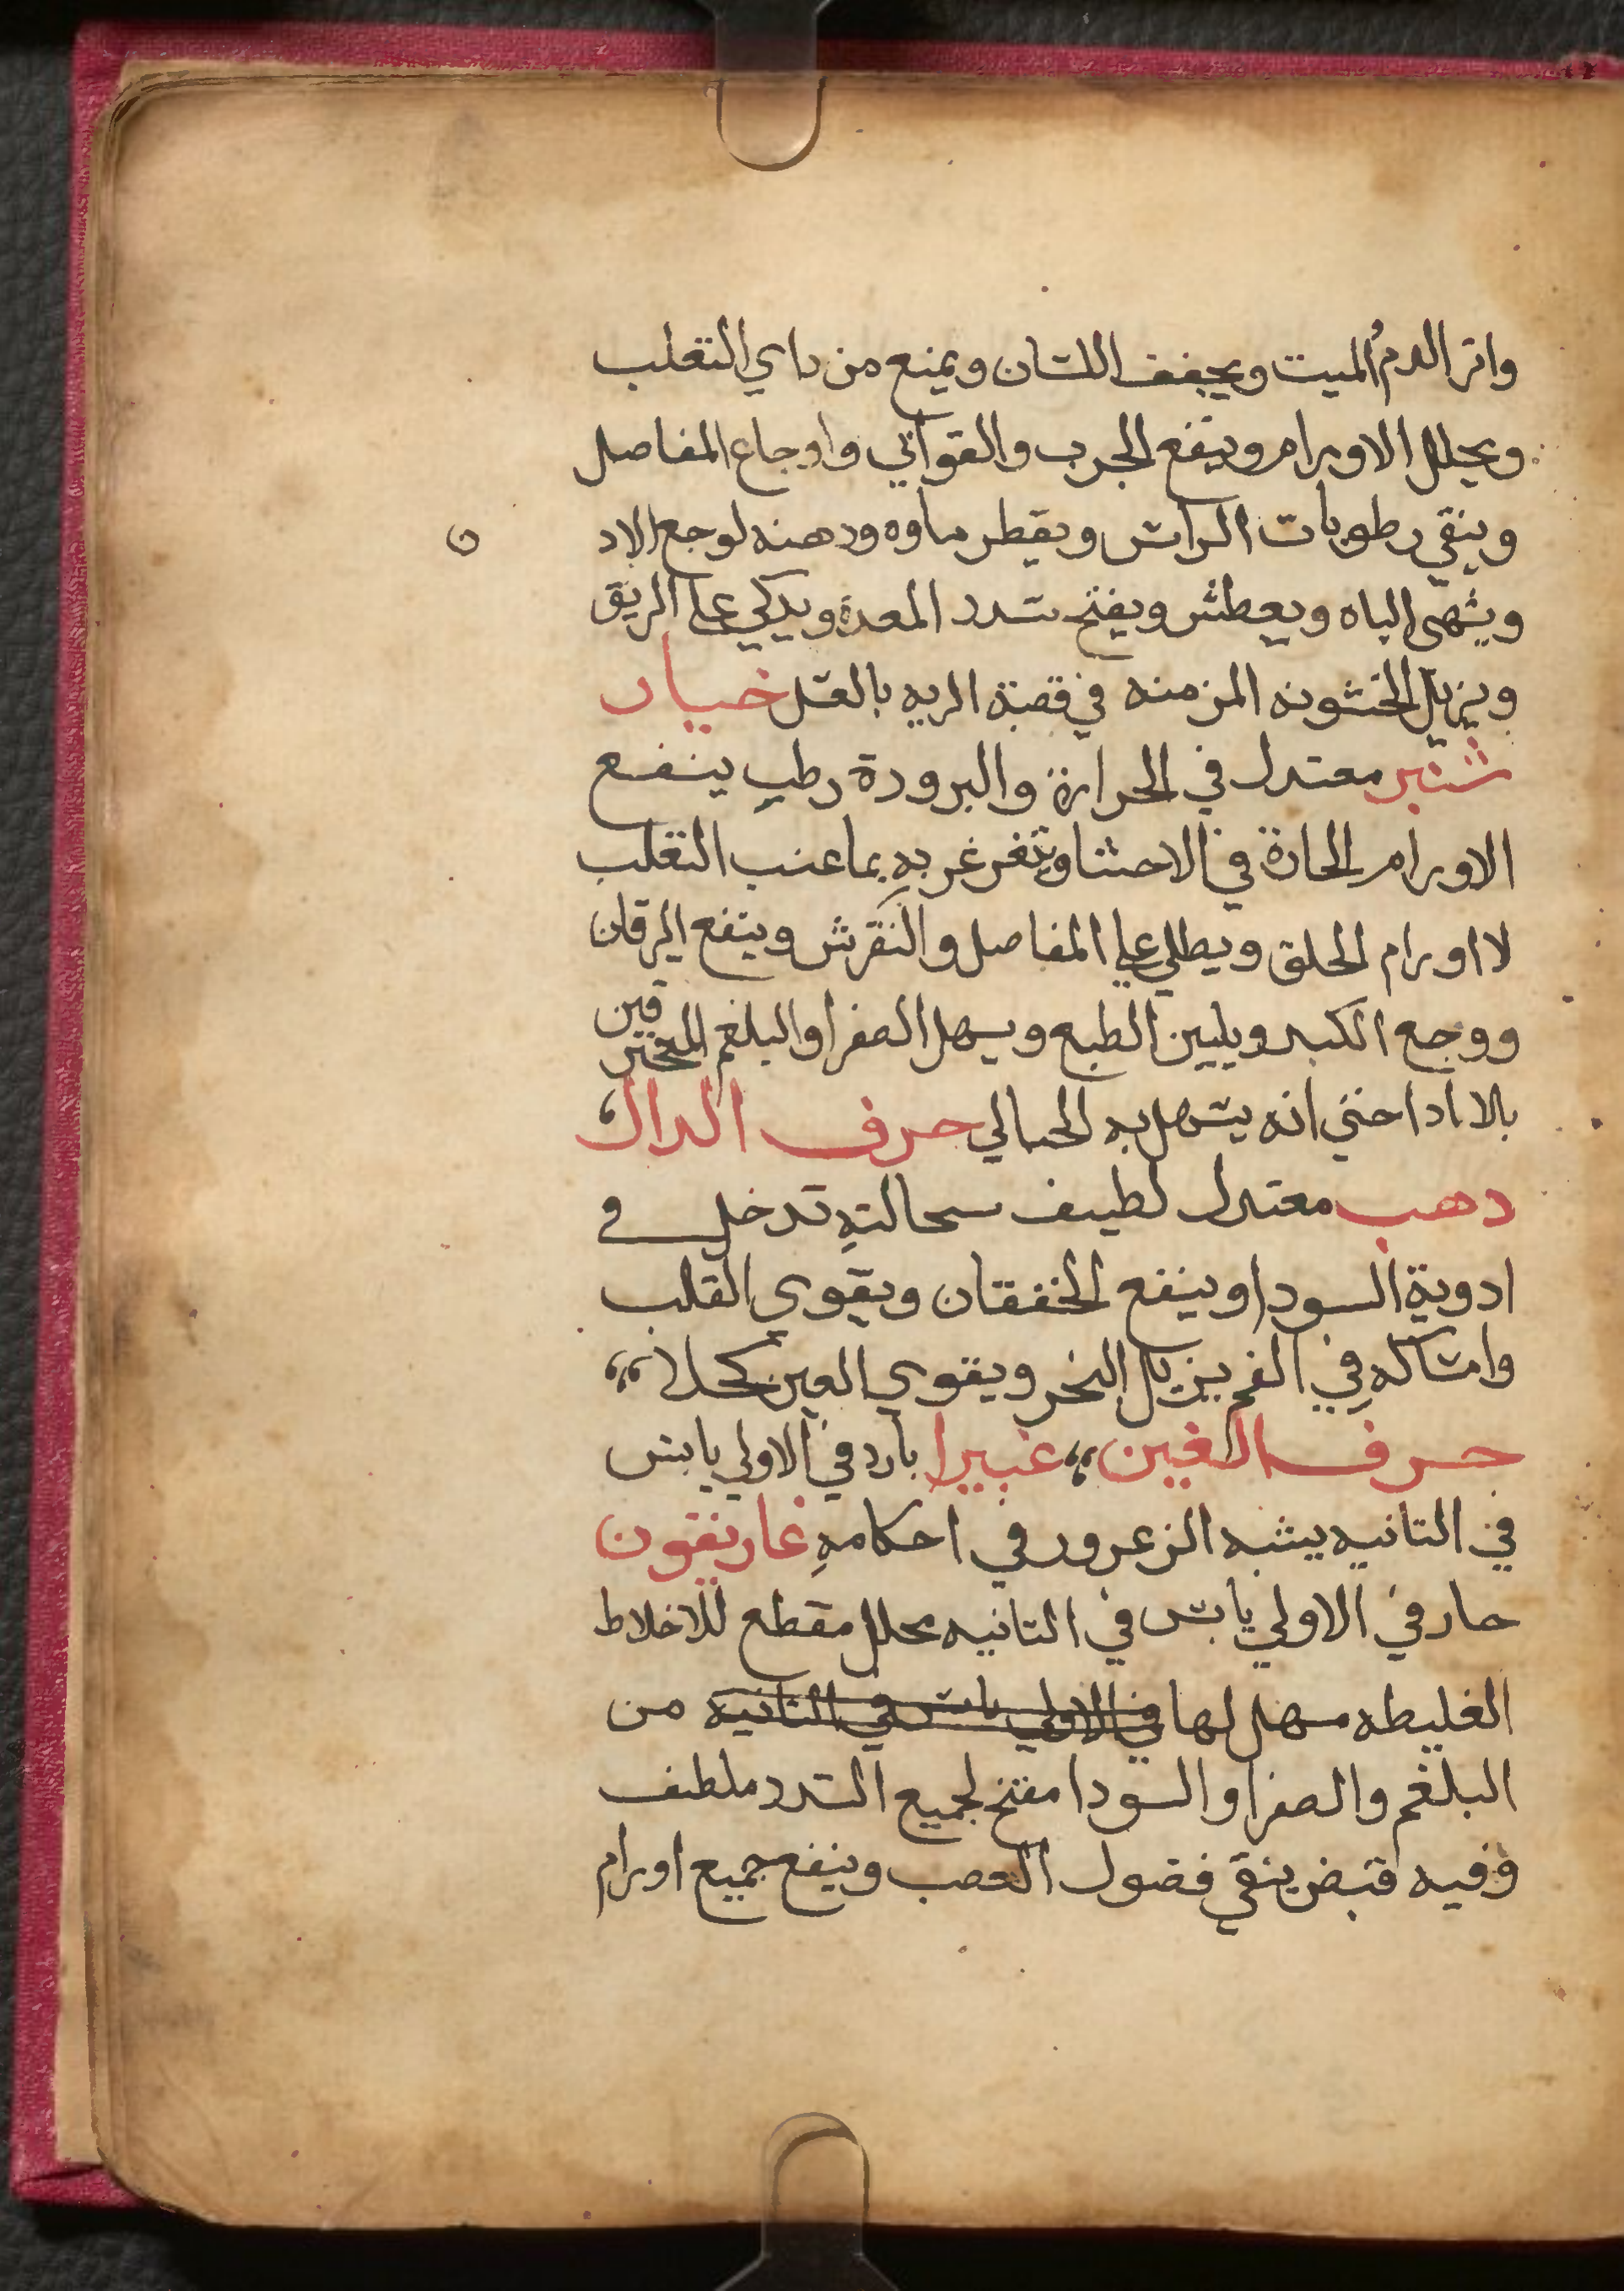 واثر الدم الميت ويجفف اللسان ويمنع من داي التعلب
ويحلل الاورام وينفع الجرب والقوابي واوجاع المفاصل
وينقي رطوبات الراس ويقطر ماوه ودهنه لوجع الاد
ن
ويشهى الباه ويعطش ويفتح سدد المعدة ويدكي علي الريق
ويزيل الخشونه المزمنه في قصبة الريه بالعسل خيار
شنبر معتدل في الحرارة والبرودة رطب ينفع
الاورام الحادة في الاحشا ويتغرغر به بما عنب التعلب
لااورام الحلق ويطلي علي المفاصل والنقرس وينفع اليرقان
ووجع الكبد ويليين الطبع ويسهل الصفرا والبلغم المحترقين
بلا اذا حتي انه يسهل به الحبالي حرف الدال
دهب معتدل لطيف سحالته تدخل في
ادوية السودا وينفع الخفقان ويقوى القلب
وامساكه في الفم يزيل البخر ويقوي العين كحلا
حرف الغين غبيرا بارد في الاولي يابس
في التانيه يشبه الزعرور في احكامه غاريقون
حار في الاولي يابس في التانيه محلل مقطع للاخلاط
الغليطه مسهل لها في الاولي يابس في التانيه من
البلغم والصفرا والسودا مفتح لجميع السدد ملطف
وفيه قبض ينقي فضول العصب وينفع جميع اورام